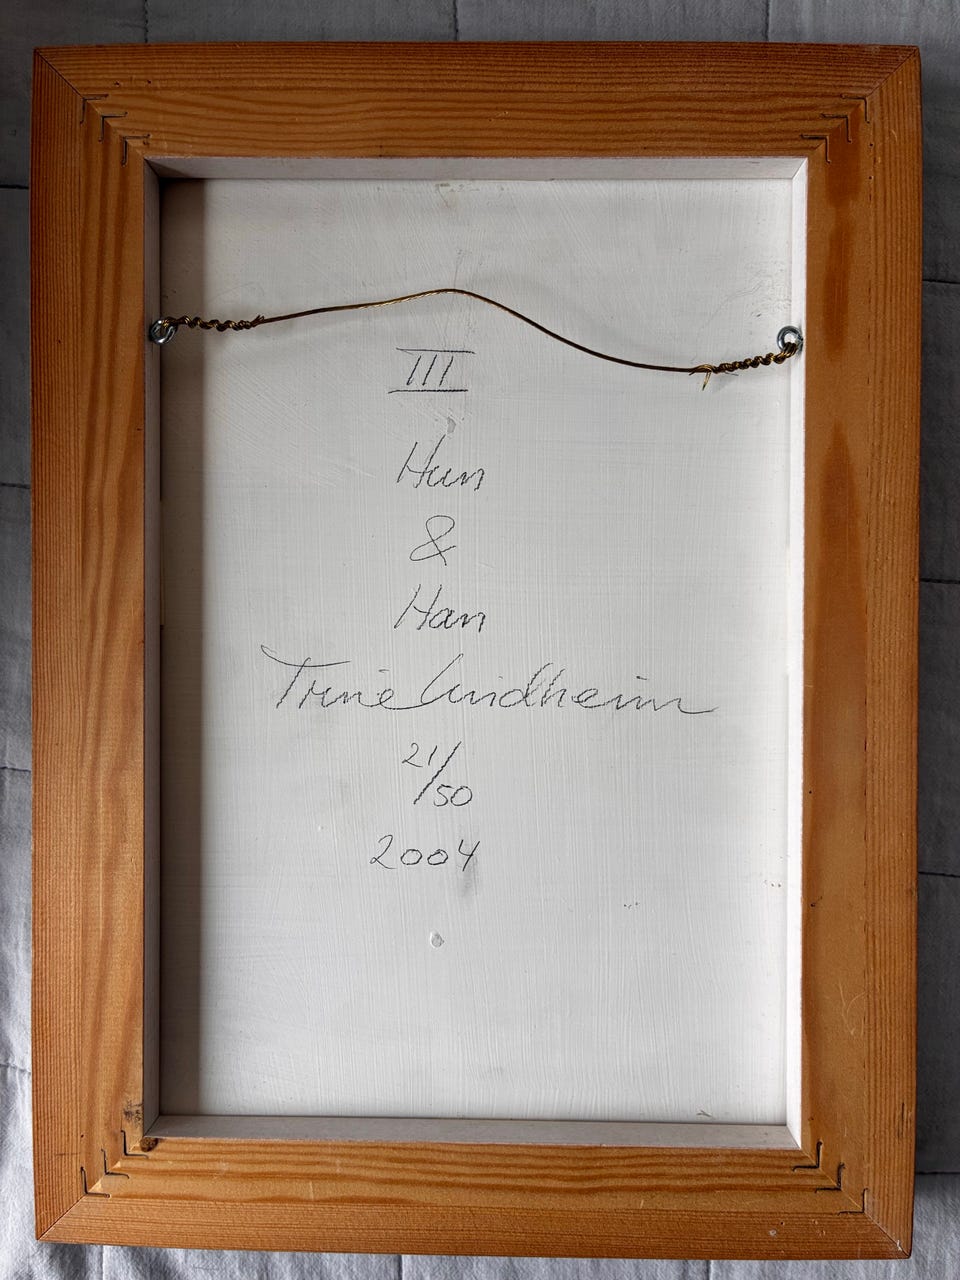 III
Hun
&
Han
Trine Lindheim
21/50
2004